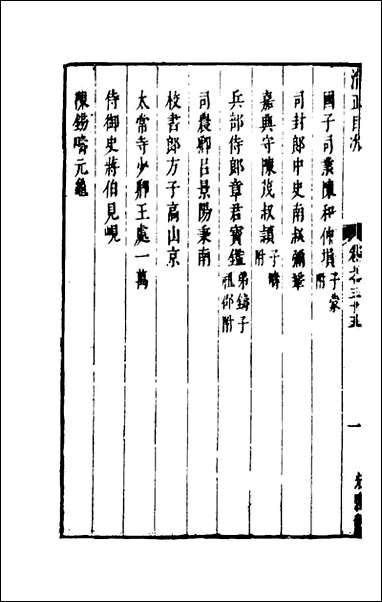 治正目次
卷之三十五
一
國子司業陳和仲塤 子蒙附
司封郎中史南叔彌鞏
嘉興守陳茂叔頴 附
兵部侍郎章君寶鑑 弟鑄子祖邵附
司農卿呂景陽秉南
校書郎方子高山京
太常寺少卿王處一萬
侍御史蔣伯見峴
陳錫疇元龜